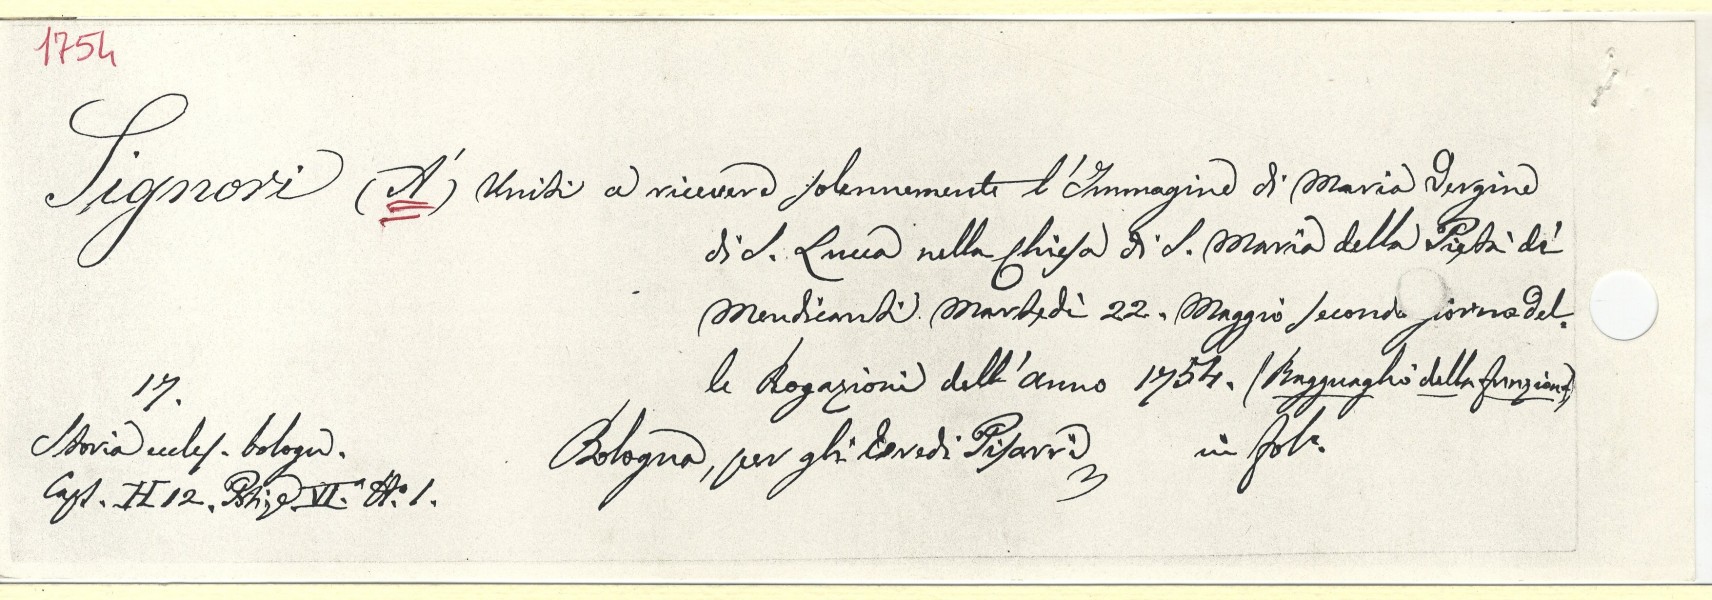 1754
Signori (A') Uniti a ricevere solennemente l'Immagine di Maria Vergine
di S. Lucca nella Chiesa di S. Maria della Pietà dè
Mendicanti Martedì 22. Maggio secondo giorno del-
le Rogazioni dell'anno 1754. (Ragguaglio della funzione)
17.
Bologna, per gli Eredi Pisarri in fol.º
Storia eccles. bologn.
Caps. H 12. VI.ª N.º 1.